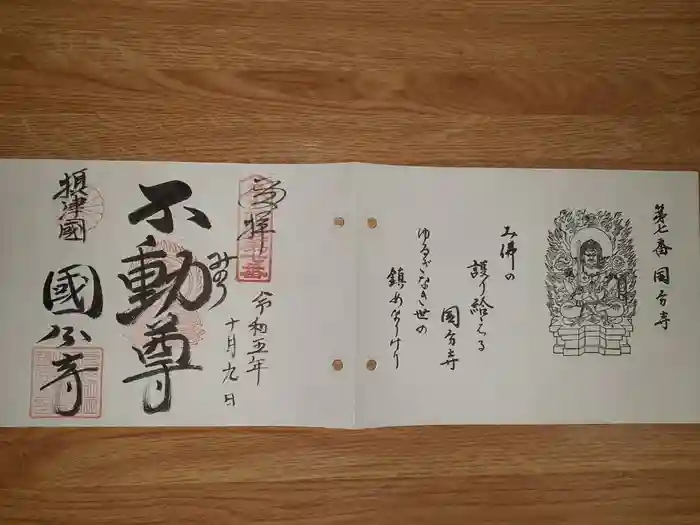 第七番 国分寺
み佛の
護り給へる
国分寺
ゆるぎなき世の
鎮めなりけり
奉拝
七番
令和五年
十月九日
みのり
不動尊
摂津國
國分寺